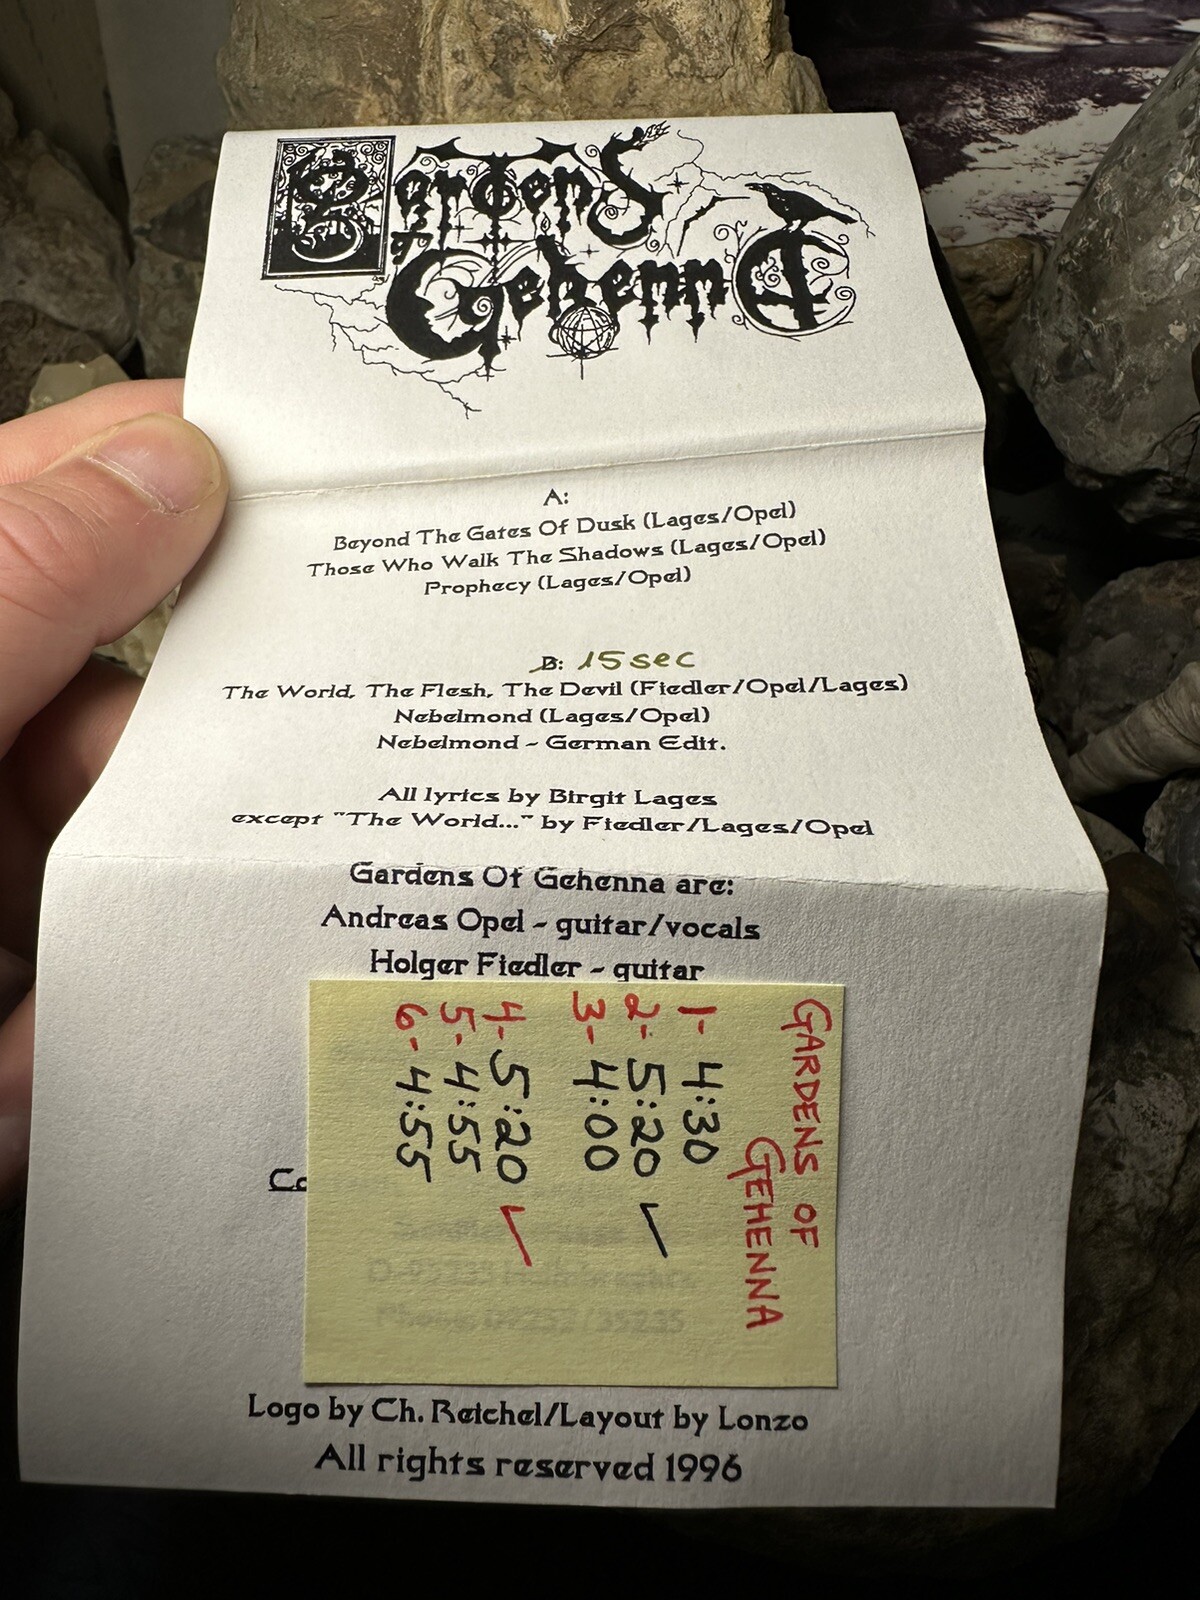 Gardens
of
Gehenna
A:
Beyond The Gates Of Dusk (Lages/Opel)
Those Who Walk The Shadows (Lages/Opel)
Prophecy (Lages/Opel)
B: 15sec
The World, The Flesh, The Devil (Fiedler/Opel/Lages)
Nebelmond (Lages/Opel)
Nebelmond - German Edit.
All lyrics by Birgit Lages
except "The World..." by Fiedler/Lages/Opel
Gardens Of Gehenna are:
Andreas Opel - guitar/vocals
Holger Fiedler - guitar
GARDENS OF
GEHENNA
1- 4:30
2- 5:20 ✓
3- 4:00
4- 5:20 ✓
5- 4:55
6- 4:55
Co
Logo by Ch. Reichel/Layout by Lonzo
All rights reserved 1996